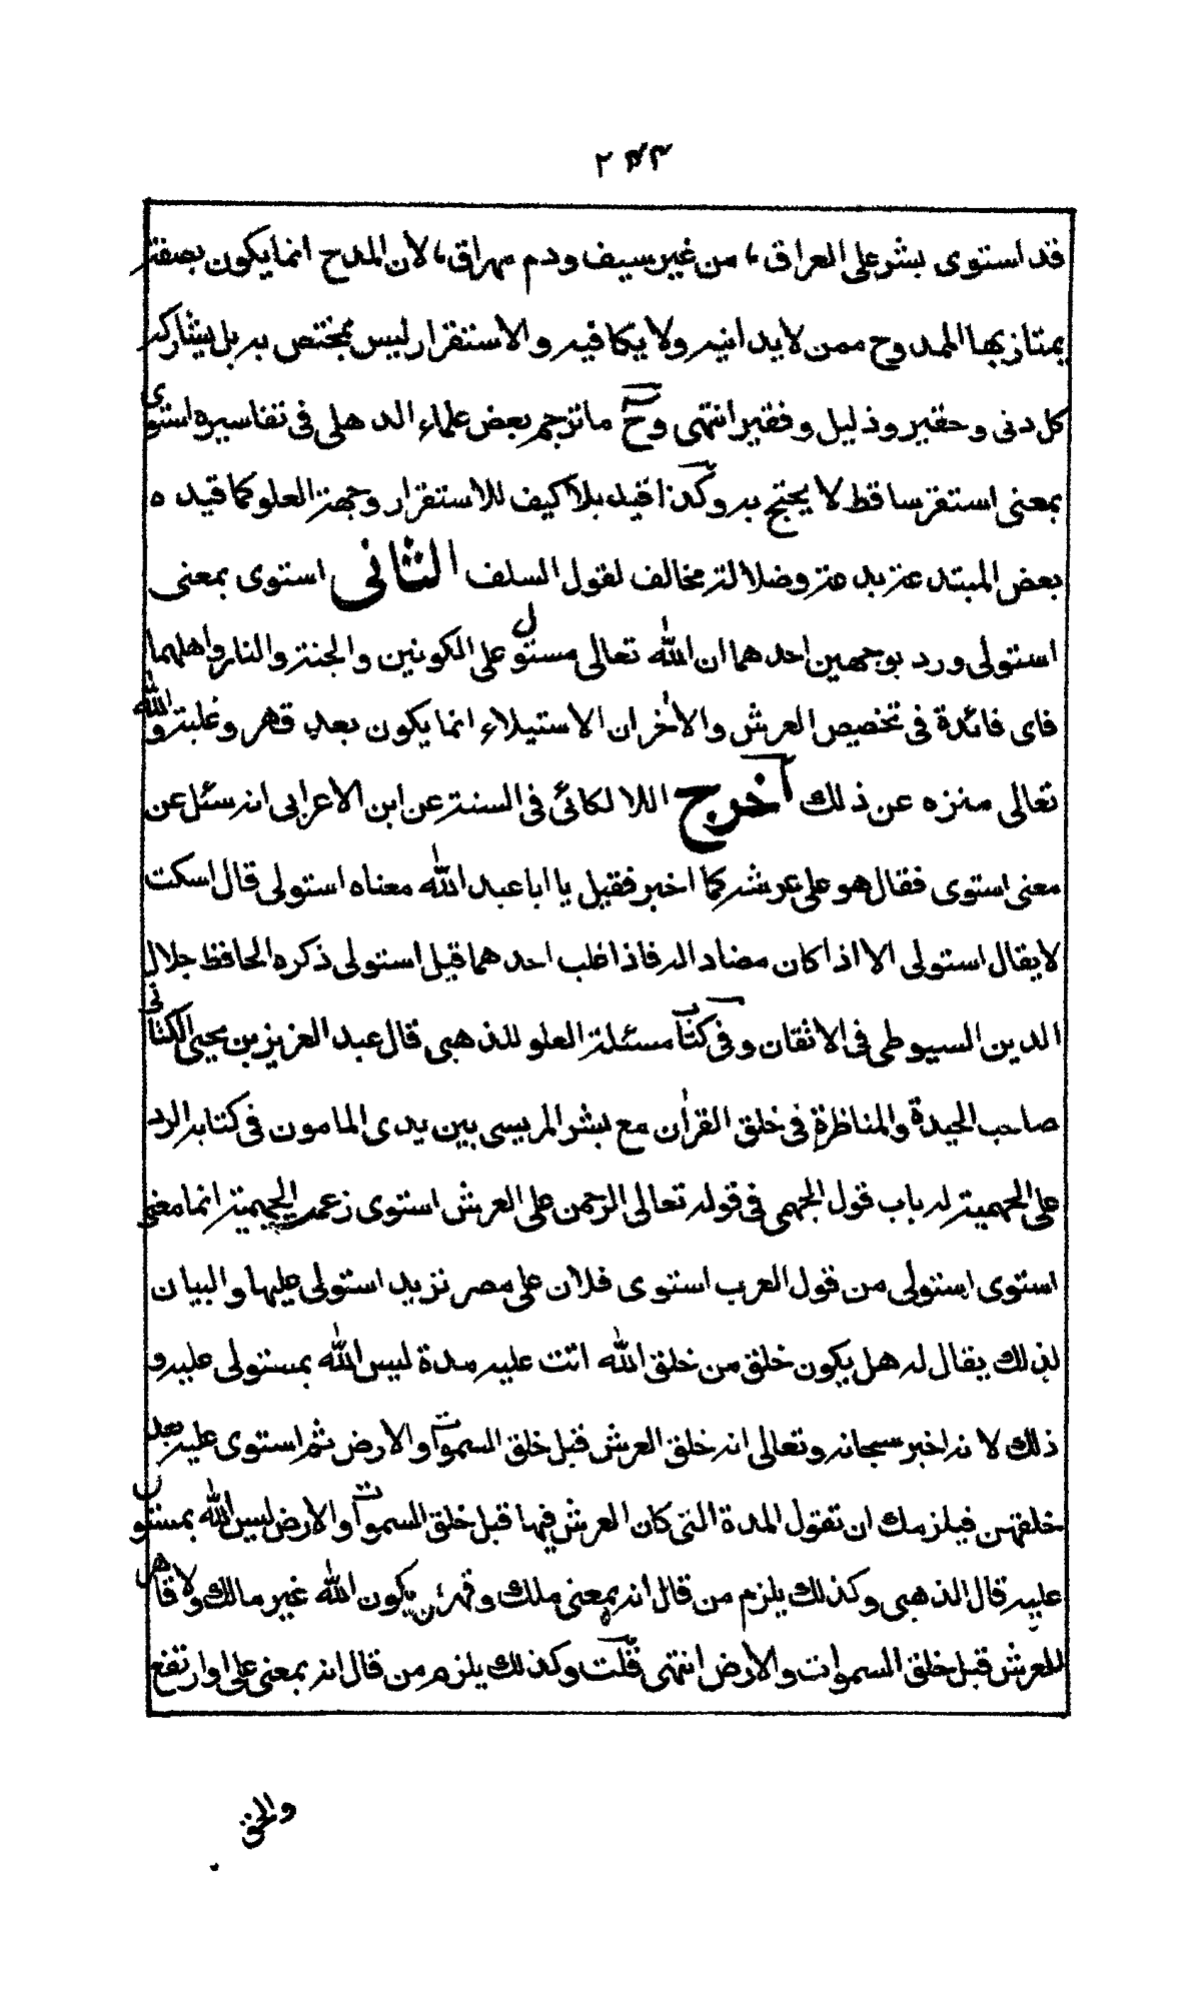 ٢٤٣
قد استوى بشر على العراق ، من غير سيف ودم مهراق ، لان المدح انما يكون بصفة
يمتاز بها الممدوح ممن لا يدانيه ولا يكافيه والاستقرار ليس بمختص به بل يشاركه
كل دنى وحقير وذليل وفقير انتهى وح ما ترجم بعض علماء الدهلى فى تفاسيره استوى
بمعنى استقر ساقط لا يحتج به وكذا قيد بلا كيف للاستقرار وجهة العلو كما قيده
بعض المبتدعة بدعة وضلالة مخالف لقول السلف الثانى استوى بمعنى
استولى ورد بوجهين احدهما ان الله تعالى مستول على الكونين والجنة والنار واهلهما
فاى فائدة فى تخصيص العرش والآخر ان الاستيلاء انما يكون بعد قهر وغلبة والله
تعالى منزه عن ذلك اخرج اللالكائى فى السنة عن ابن الاعرابى انه سئل عن
معنى استوى فقال هو على عرشه كما اخبر فقيل يا ابا عبد الله معناه استولى قال اسكت
لا يقال استولى الا اذا كان مضاد له فاذا غلب احدهما قيل استولى ذكره الحافظ جلال
الدين السيوطى فى الاتقان وفى كتاب مسئلة العلو للذهبى قال عبد العزيز بن يحيى الكنانى
صاحب الحيدة والمناظرة فى خلق القرآن مع بشر المريسى بين يدى المامون فى كتابه الرد
على الجهمية له باب قول الجهمى فى قوله تعالى الرحمن على العرش استوى زعمت الجهمية انما معنى
استوى استولى من قول العرب استوى فلان على مصر نزيد استولى عليها والبيان
لذلك يقال له هل يكون خلق من خلق الله اتت عليه مدة ليس الله بمستولى عليه و
ذلك لانه اخبر سبحانه وتعالى انه خلق العرش قبل خلق السموات والارض ثم استوى عليه بعد
خلقهن فيلزمك ان تقول المدة التى كان العرش فيها قبل خلق السموات والارض ليس الله بمستول
عليه قال الذهبى وكذلك يلزم من قال انه بمعنى ملك وقهر ان يكون الله غير مالك ولا قاهر
للعرش قبل خلق السموات والارض انتهى قلت وكذلك يلزم من قال انه بمعنى على او ارتفع
والحق